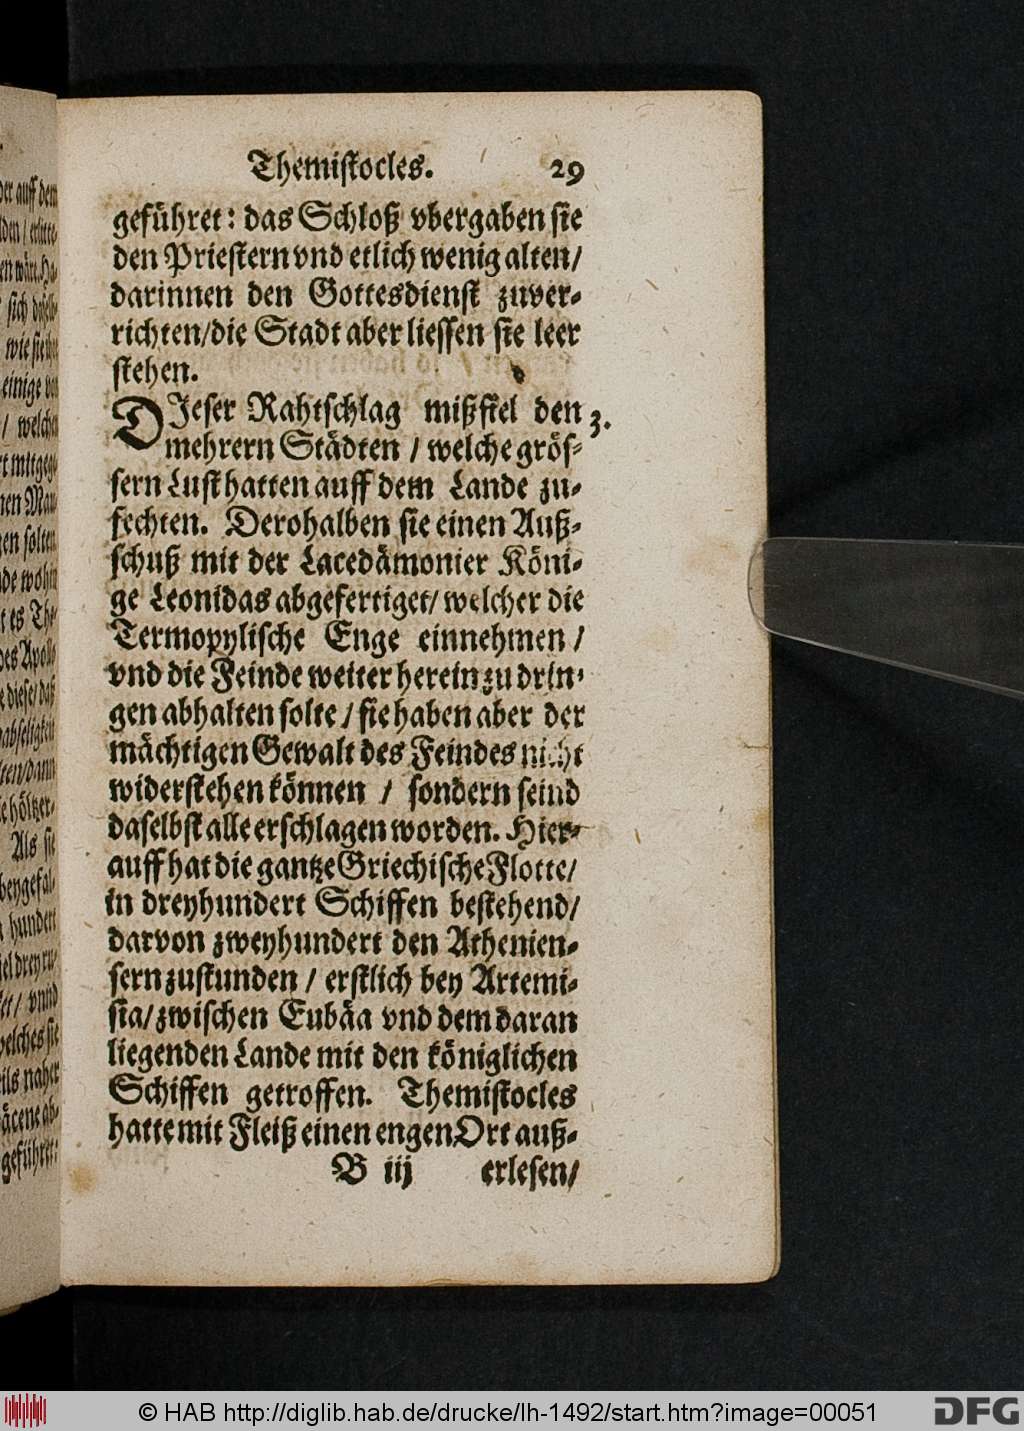 Themistocles. 29
geführet: das Schloß vbergaben sie
den Priestern vnd etlich wenig alten/
darinnen den Gottesdienst zuver-
richten/die Stadt aber liessen sie leer
stehen.
DIeser Rahtschlag mißfiel den 3.
mehrern Städten / welche grös-
sern Lust hatten auff dem Lande zu-
fechten. Derohalben sie einen Auß-
schuß mit der Lacedämonier Köni-
ge Leonidas abgefertiget/ welcher die
Termopylische Enge einnehmen /
vnd die Feinde weiter herein zu drin-
gen abhalten solte / sie haben aber der
mächtigen Gewalt des Feindes nicht
widerstehen können / sondern seind
daselbst alle erschlagen worden. Hier-
auff hat die gantze Griechische Flotte/
in dreyhundert Schiffen bestehend/
darvon zweyhundert den Athenien-
sern zustunden / erstlich bey Artemi-
sia/zwischen Eubäa vnd dem daran
liegenden Lande mit den königlichen
Schiffen getroffen. Themistocles
hatte mit Fleiß einen engen Ort auß-
B iij erlesen/
der auff dem
/ welche
sich
wie sie
einige
solten
Als sie
hundert
/ vnnd
welches sie
naher
geführet:
© HAB http://diglib.hab.de/drucke/lh-1492/start.htm?image=00051
DFG